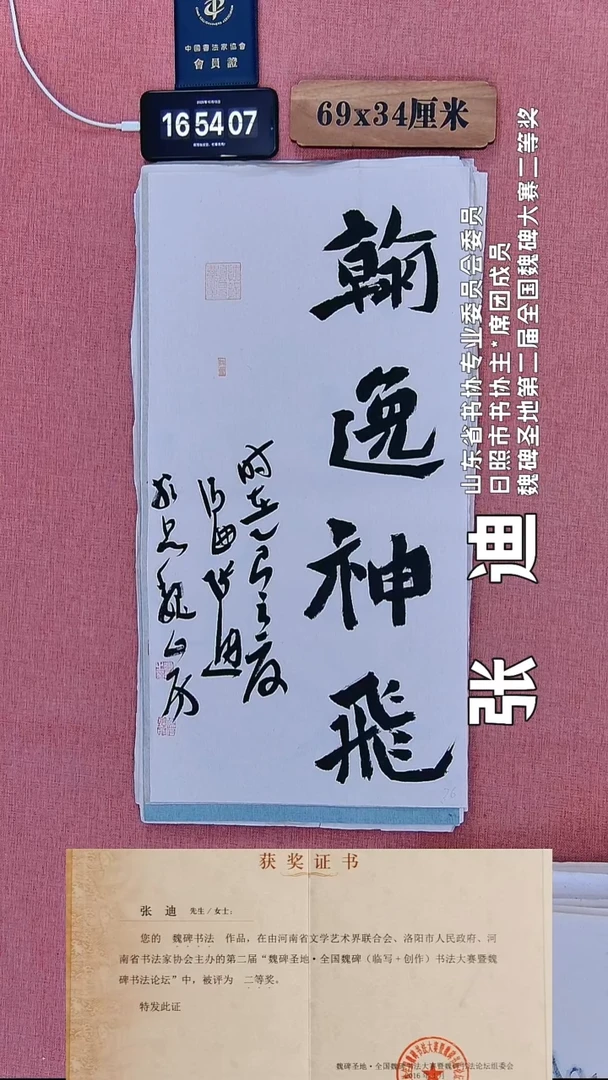 中國書法家協會
會員證
16 54 07
69x34厘米
翰逸神飛
山东省书协专业委员会委员
日照市书协主*席团成员
魏碑圣地第二届全国魏碑大赛二等奖
张 迪
获奖证书
张 迪 先生/女士:
您的 魏碑书法 作品,在由河南省文学艺术界联合会、洛阳市人民政府、河
南省书法家协会主办的第二届“魏碑圣地·全国魏碑(临写+创作)书法大赛暨魏
碑书法论坛”中,被评为 二等奖。
特发此证
魏碑圣地·全国魏碑书法大赛暨魏碑书法论坛组委会